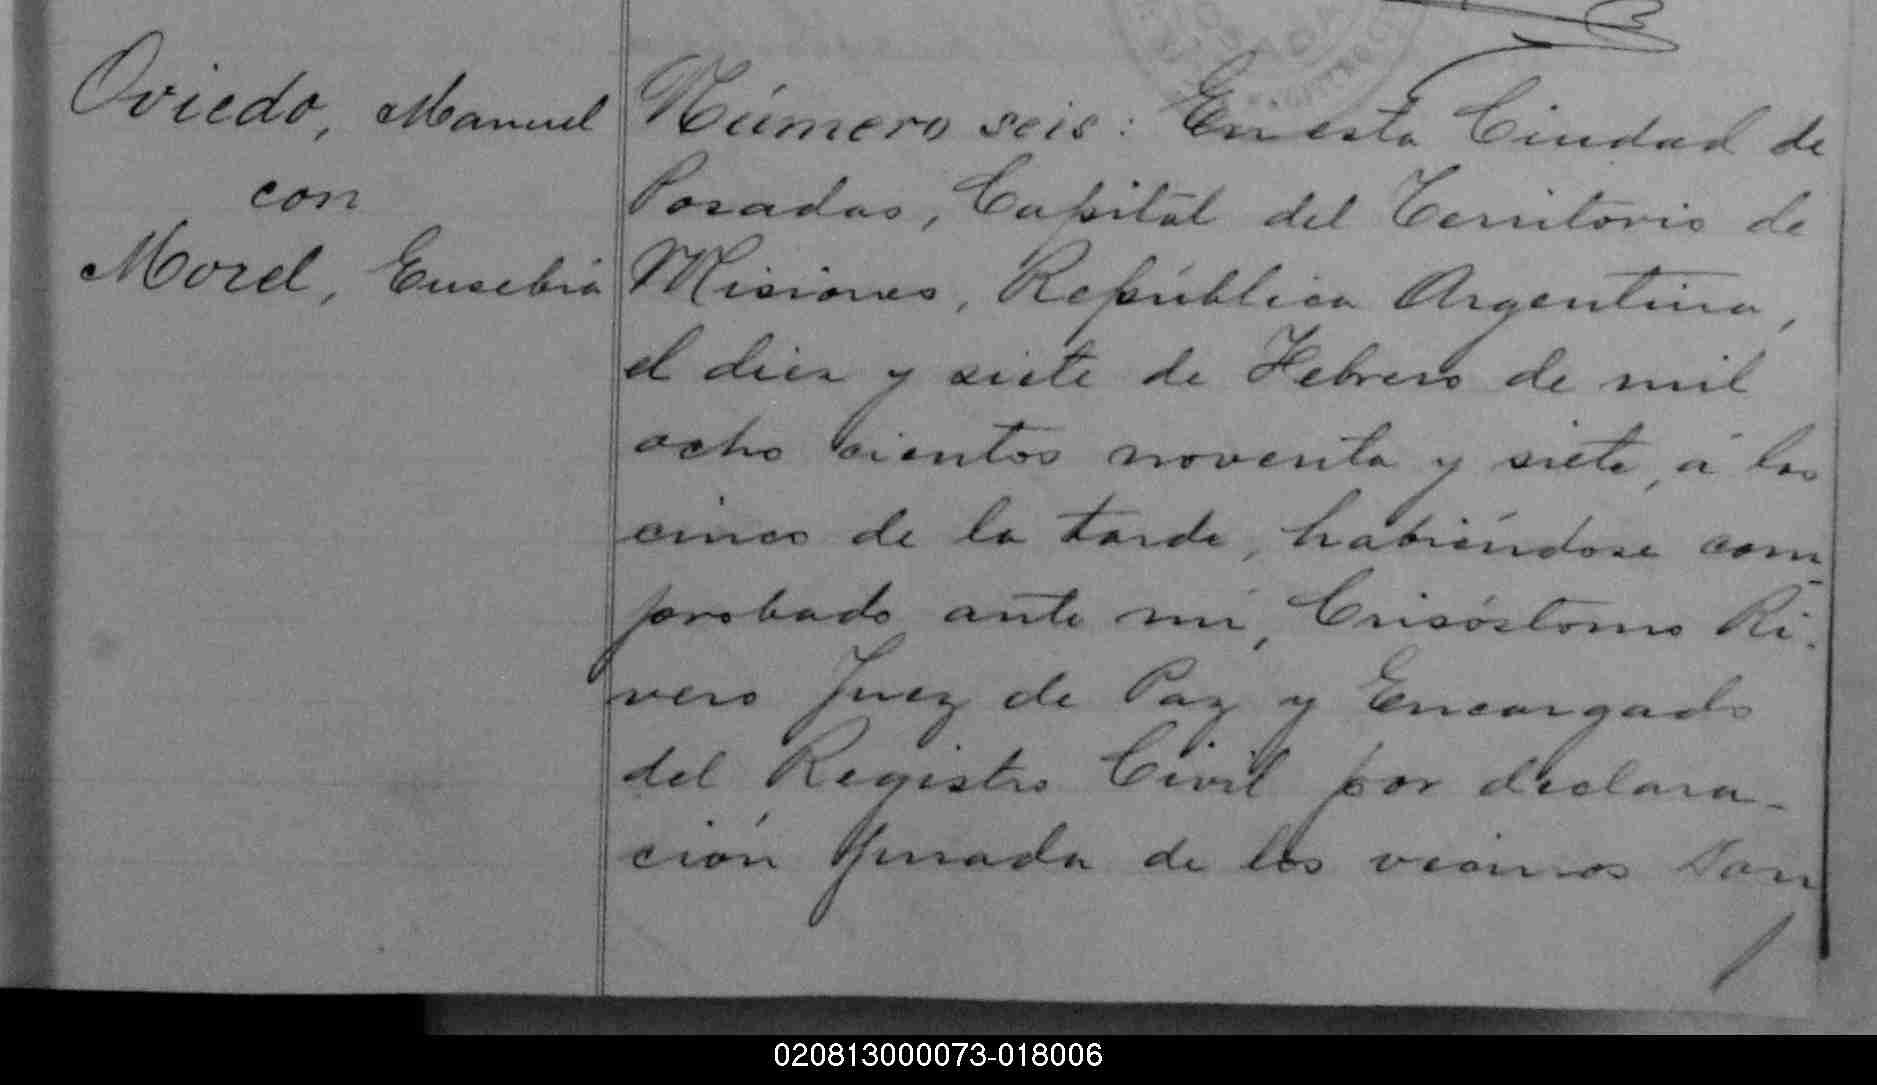 Oviedo, Manuel
con
Morel, Eusebia
Número seis: En esta Ciudad de
Posadas, Capital del Territorio de
Misiones, República Argentina,
el diez y siete de Febrero de mil
ocho cientos noventa y siete, á las
cinco de la tarde, habiéndose com
probado ante mí, Crisóstomo Ri-
vero Juez de Paz y Encargado
del Registro Civil por declara-
ción jurada de los vecinos Don
020813000073-018006